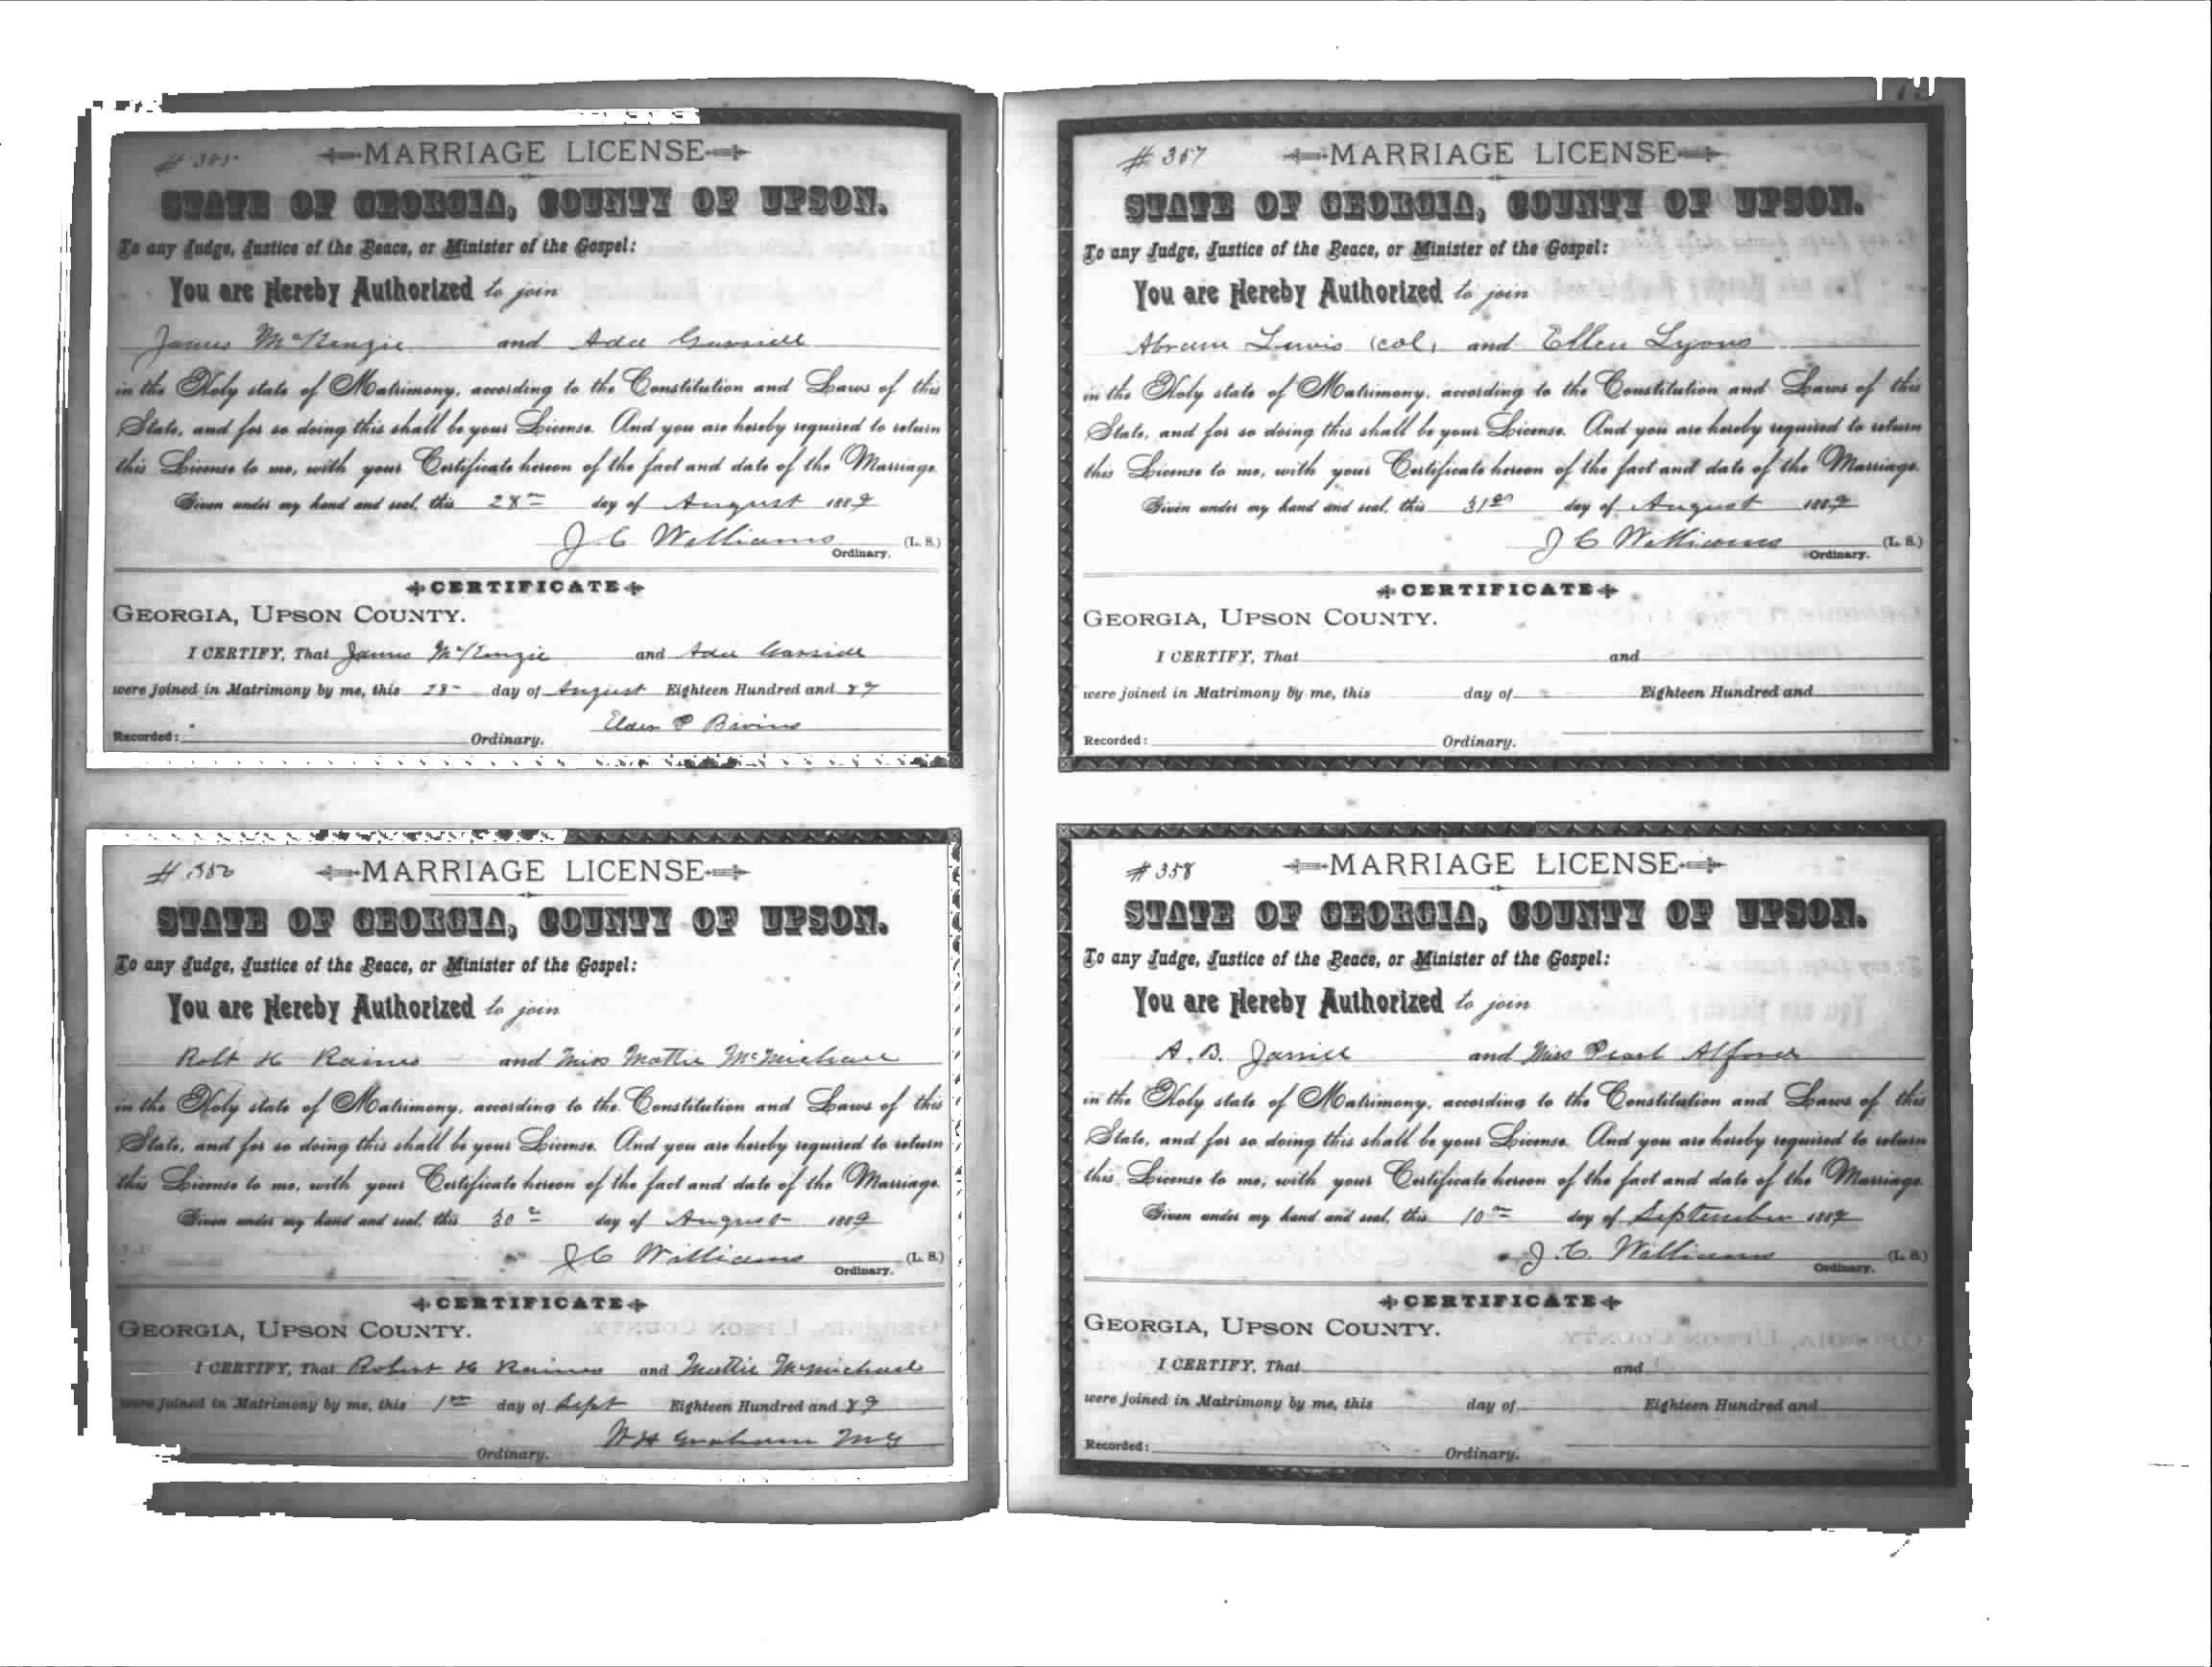 # 355 MARRIAGE LICENSE
STATE OF GEORGIA, COUNTY OF UPSON.
To any Judge, Justice of the Peace, or Minister of the Gospel:
You are Hereby Authorized to join
James McKenzie and Ada
in the Holy state of Matrimony, according to the Constitution and Laws of this
State, and for so doing this shall be your License. And you are hereby required to return
this License to me, with your Certificate hereon of the fact and date of the Marriage.
Given under my hand and seal, this 28th day of August 1889
J C Williams (L. S.)
Ordinary.
CERTIFICATE
GEORGIA, UPSON COUNTY.
I CERTIFY, That James McKenzie and Ada
were joined in Matrimony by me, this 28- day of August Eighteen Hundred and 89
Elder P Bivins
Recorded: Ordinary.
# MARRIAGE LICENSE
STATE OF GEORGIA, COUNTY OF UPSON.
To any Judge, Justice of the Peace, or Minister of the Gospel:
You are Hereby Authorized to join
Robt H Raines and Miss Mattie McMichael
in the Holy state of Matrimony, according to the Constitution and Laws of this
State, and for so doing this shall be your License. And you are hereby required to return
this License to me, with your Certificate hereon of the fact and date of the Marriage.
Given under my hand and seal, this 30th day of August 1889
J C Williams (L. S.)
Ordinary.
CERTIFICATE
GEORGIA, UPSON COUNTY.
I CERTIFY, That Robert H Raines and Mattie McMichael
were joined in Matrimony by me, this 1st day of Sept Eighteen Hundred and 89
W H Graham MG
Ordinary.
# 357 MARRIAGE LICENSE
STATE OF GEORGIA, COUNTY OF UPSON.
To any Judge, Justice of the Peace, or Minister of the Gospel:
You are Hereby Authorized to join
Abram Lewis (col) and Ellen Lyons
in the Holy state of Matrimony, according to the Constitution and Laws of this
State, and for so doing this shall be your License. And you are hereby required to return
this License to me, with your Certificate hereon of the fact and date of the Marriage.
Given under my hand and seal, this 31st day of August 1889
J C Williams (L. S.)
Ordinary.
CERTIFICATE
GEORGIA, UPSON COUNTY.
I CERTIFY, That and
were joined in Matrimony by me, this day of Eighteen Hundred and
Recorded: Ordinary.
# 358 MARRIAGE LICENSE
STATE OF GEORGIA, COUNTY OF UPSON.
To any Judge, Justice of the Peace, or Minister of the Gospel:
You are Hereby Authorized to join
A. B. and Miss Pearl Alford
in the Holy state of Matrimony, according to the Constitution and Laws of this
State, and for so doing this shall be your License. And you are hereby required to return
this License to me, with your Certificate hereon of the fact and date of the Marriage.
Given under my hand and seal, this 10th day of September 1889
J. C. Williams (L. S.)
Ordinary.
CERTIFICATE
GEORGIA, UPSON COUNTY.
I CERTIFY, That and
were joined in Matrimony by me, this day of Eighteen Hundred and
Recorded: Ordinary.